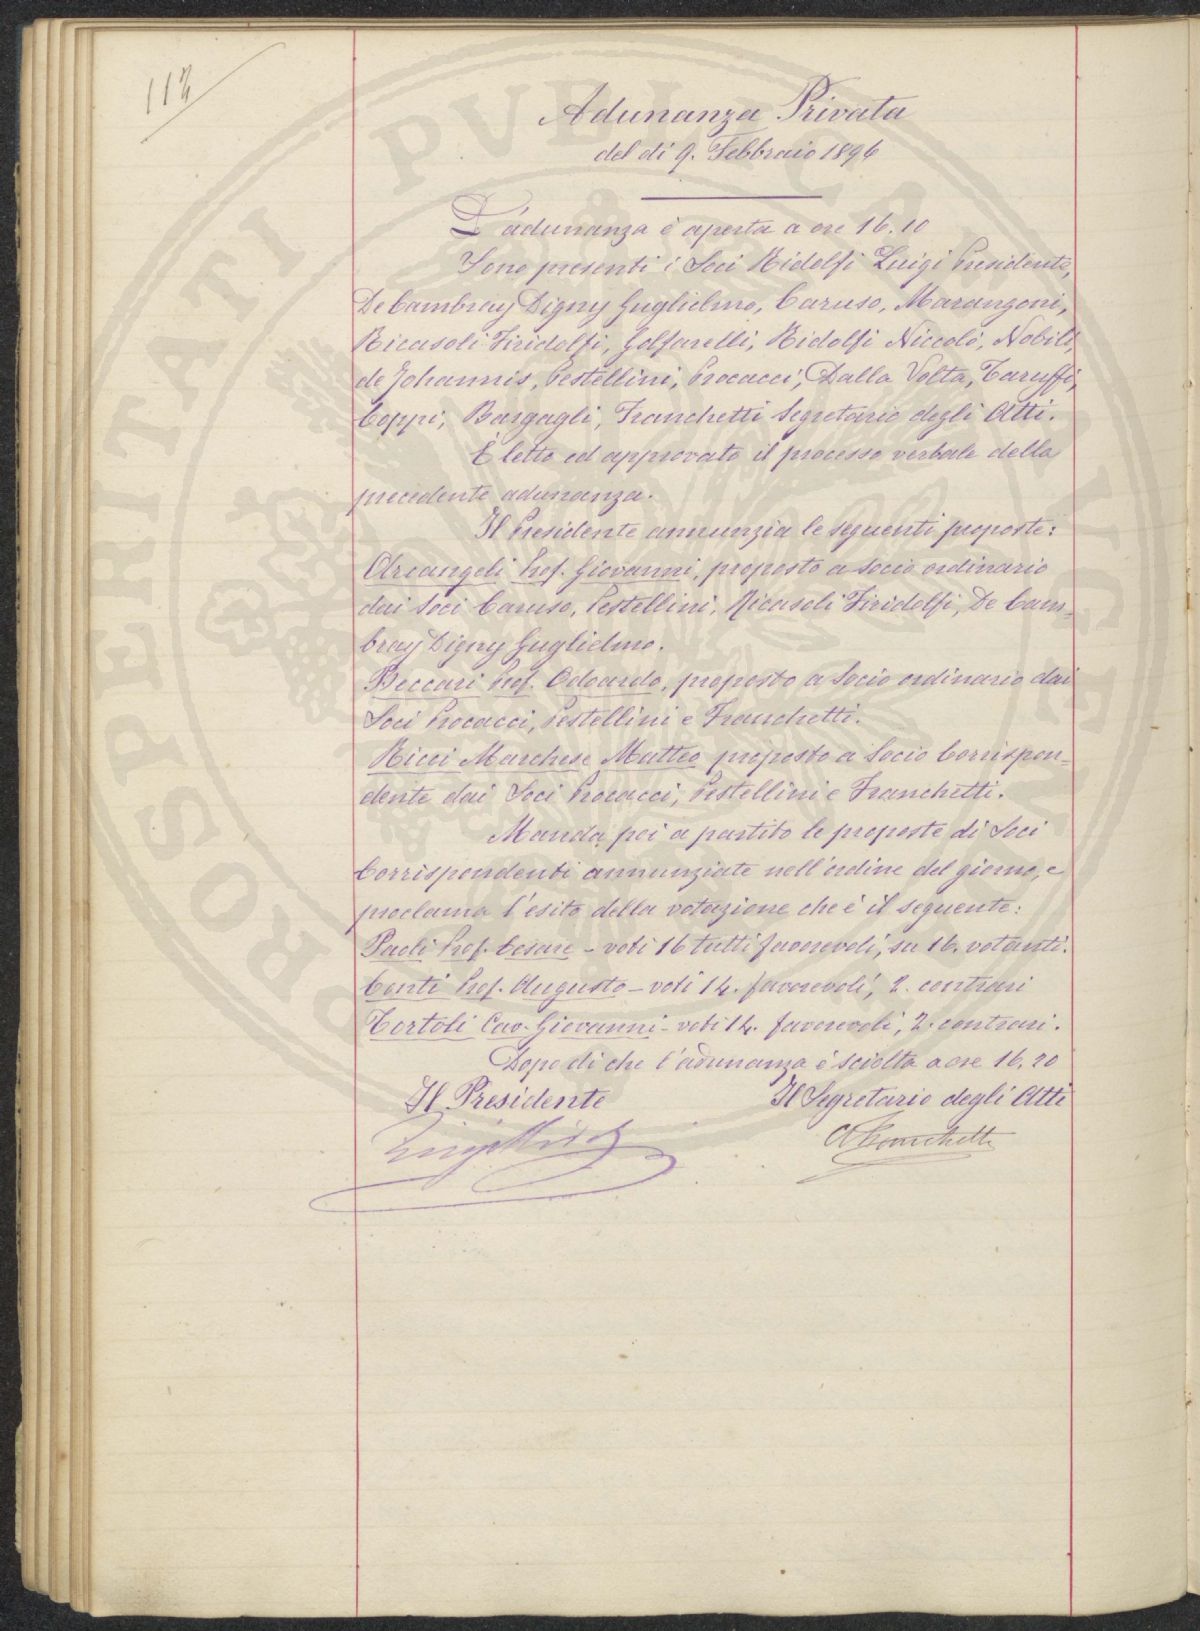 112
Adunanza Privata
del dì 9. Febbraio 1896
L'adunanza è aperta a ore 16.10
Sono presenti i Soci Ridolfi Luigi Presidente,
De Cambray Digny Guglielmo, Caruso, Marangoni,
Ricasoli Firidolfi, Golfarelli, Ridolfi Niccolò, Nobili,
de Johannis, Pestellini, Procacci, Dalla Volta, Taruffi,
Coppi, Bargagli, Franchetti Segretario degli Atti.
È letto ed approvato il processo verbale della
precedente adunanza.
Il Presidente annunzia le seguenti proposte:
Arcangeli Prof. Giovanni, proposto a Socio ordinario
dai Soci Caruso, Pestellini, Ricasoli Firidolfi, De Cam=
bray Digny Guglielmo.
Beccari Prof. Odoardo, proposto a Socio ordinario dai
Soci Procacci, Pestellini e Franchetti.
Ricci Marchese Matteo proposto a Socio Corrispon=
dente dai Soci Procacci, Pestellini e Franchetti.
Manda poi a partito le proposte di Soci
Corrispondenti annunziate nell'ordine del giorno, e
proclama l'esito della votazione che è il seguente:
Paoli Prof. Cesare - voti 16 tutti favorevoli, su 16. votanti.
Conti Prof. Augusto - voti 14. favorevoli, 2. contrari
Tortoli Cav. Giovanni - voti 14. favorevoli, 2. contrari.
Dopo di che l'adunanza è sciolta a ore 16.20
Il Presidente
Il Segretario degli Atti
Luigi Ridolfi
A Franchetti
PROSPERITATI PVBLICAE AVGENDAE